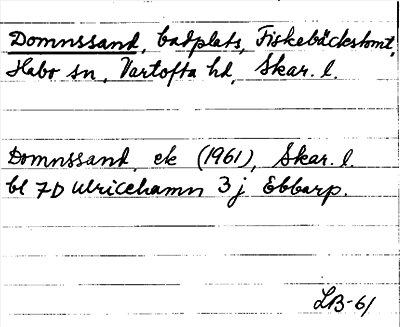 Domnssand, badplats, Fiskebäckstomt,
Habo sn, Vartofta hd, Skar. l.
Domnssand, ek (1961), Skar. l.
bl 7D Ulricehamn 3j Ebbarp.
LB-61